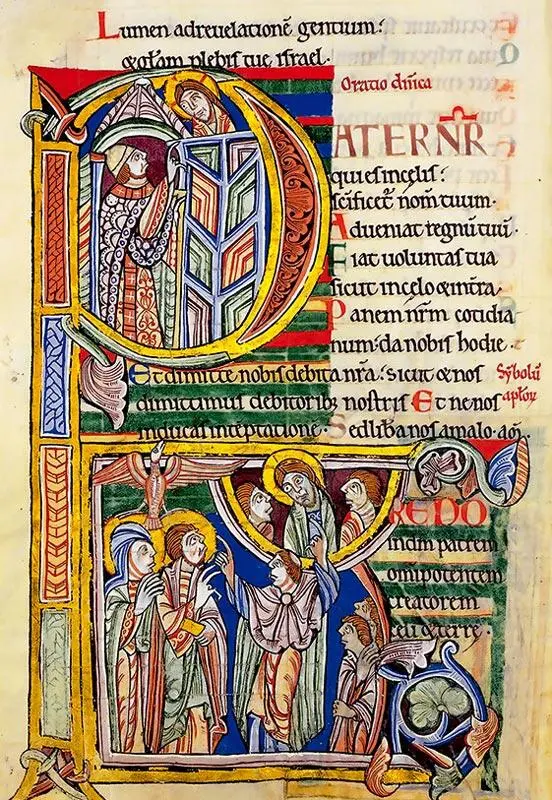 Lumen adreuelationē gentium:
&gl̄am plebis tue israel.
Oratio dn̄ica
PATERNR̄
quiesincęlis:
sc̄ificet̄ nom̄ tuum.
Adueniat regnū tuū.
Fiat uoluntas tua
sicut incęlo &intr̄a.
Panem nr̄m cotidia
num: da nobis hodie.
Et dimitte nobis debita nr̄a: sicut &nos
dimittimus debitorib; nostris Et ne nos
inducas intēptatione. Sed libera nos amalo. am̄.
Sȳbolū
apl̄oꝝ
CREDO
indm̄ patrem
omipotentem
creatorem
cęli &terrę.